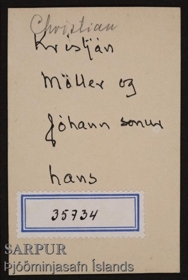 Christian
Kristján
Möller og
Jóhann sonur
hans
35734
SARPUR
Þjóðminjasafn Íslands